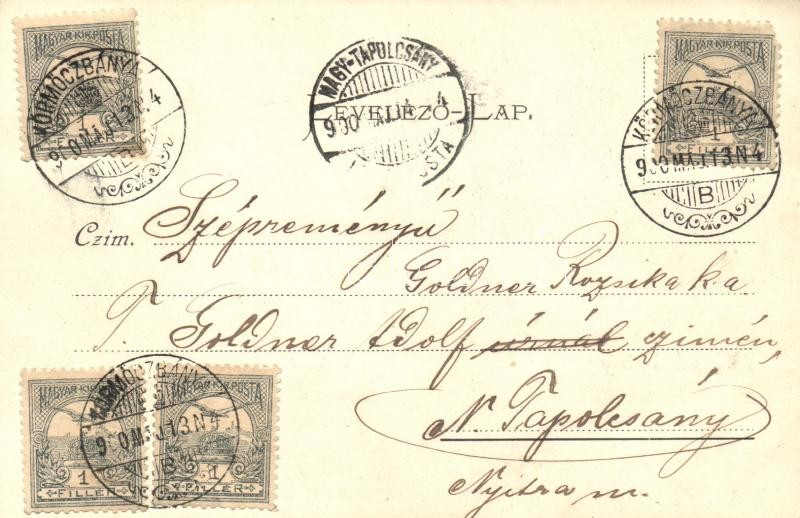 MAGYAR KIR. POSTA
KÖRMÖCZBÁNYA
900 MÁJ 13 N 4
NAGY-TAPOLCSÁNY
900 MÁJ 14 4
POSTA
MAGYAR KIR. POSTA
1
FILLÉR
KÖRMÖCZBÁNYA
900 MÁJ 13 N 4
B
LEVELEZŐ-LAP.
Czim. Szépreményű
Goldner Rozsika k.a
T. Goldner Adolf úrnál czimén,
N. Tapolcsány
Nyitra m.
MAGYAR KIR. POSTA
MAGYAR KIR. POSTA
KÖRMÖCZBÁNYA
900 MÁJ 13 N 4
B
1
FILLÉR
1
FILLÉR